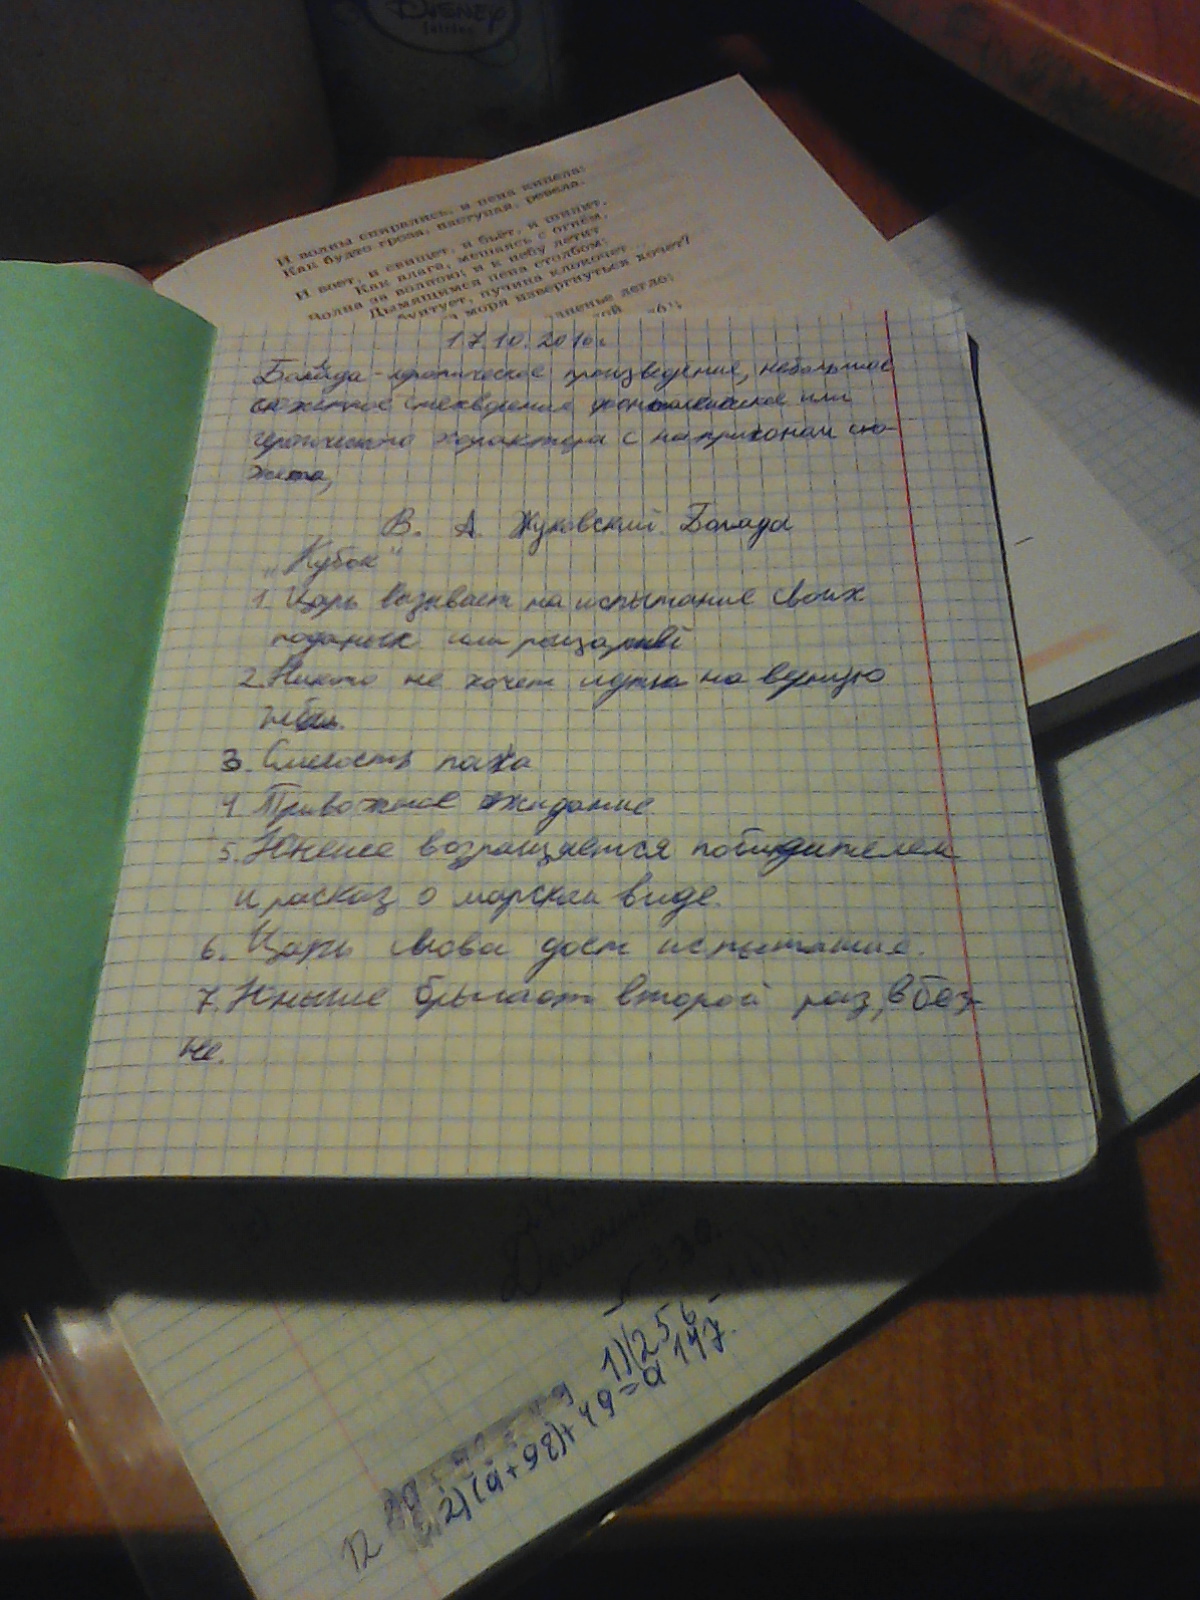 Disney
И волны спирались, и пена кипела:
Как будто гроза, наступая, ревела.
И воет, и свищет, и бьёт, и шипит,
Как влага, мешаясь с огнём,
Волна за волною; и к небу летит
Дымящимся пена столбом;
бунтует, пучина клокочет...
из моря извергнуться хочет?
легло;
17.10.2010г.
Баллада - лироэпическое произведение, небольшое
сюжетное или
героического характера с сю-
жета,
В. А. Жуковский. Баллада
„Кубок"
1. Царь вызывает на испытание своих
поданых или рыцарей
2. Никто не хочет идти на верную
гибель.
3. Смелость пажа
4 Тривожное ожидание
5. Юнеше возращается победителем
и расказ о марском виде.
6. Царь снова дает испытание.
7. Юныше брысает второй раз, в без-
не.
1)(256-
147.
2)(a+98)+49=a
12